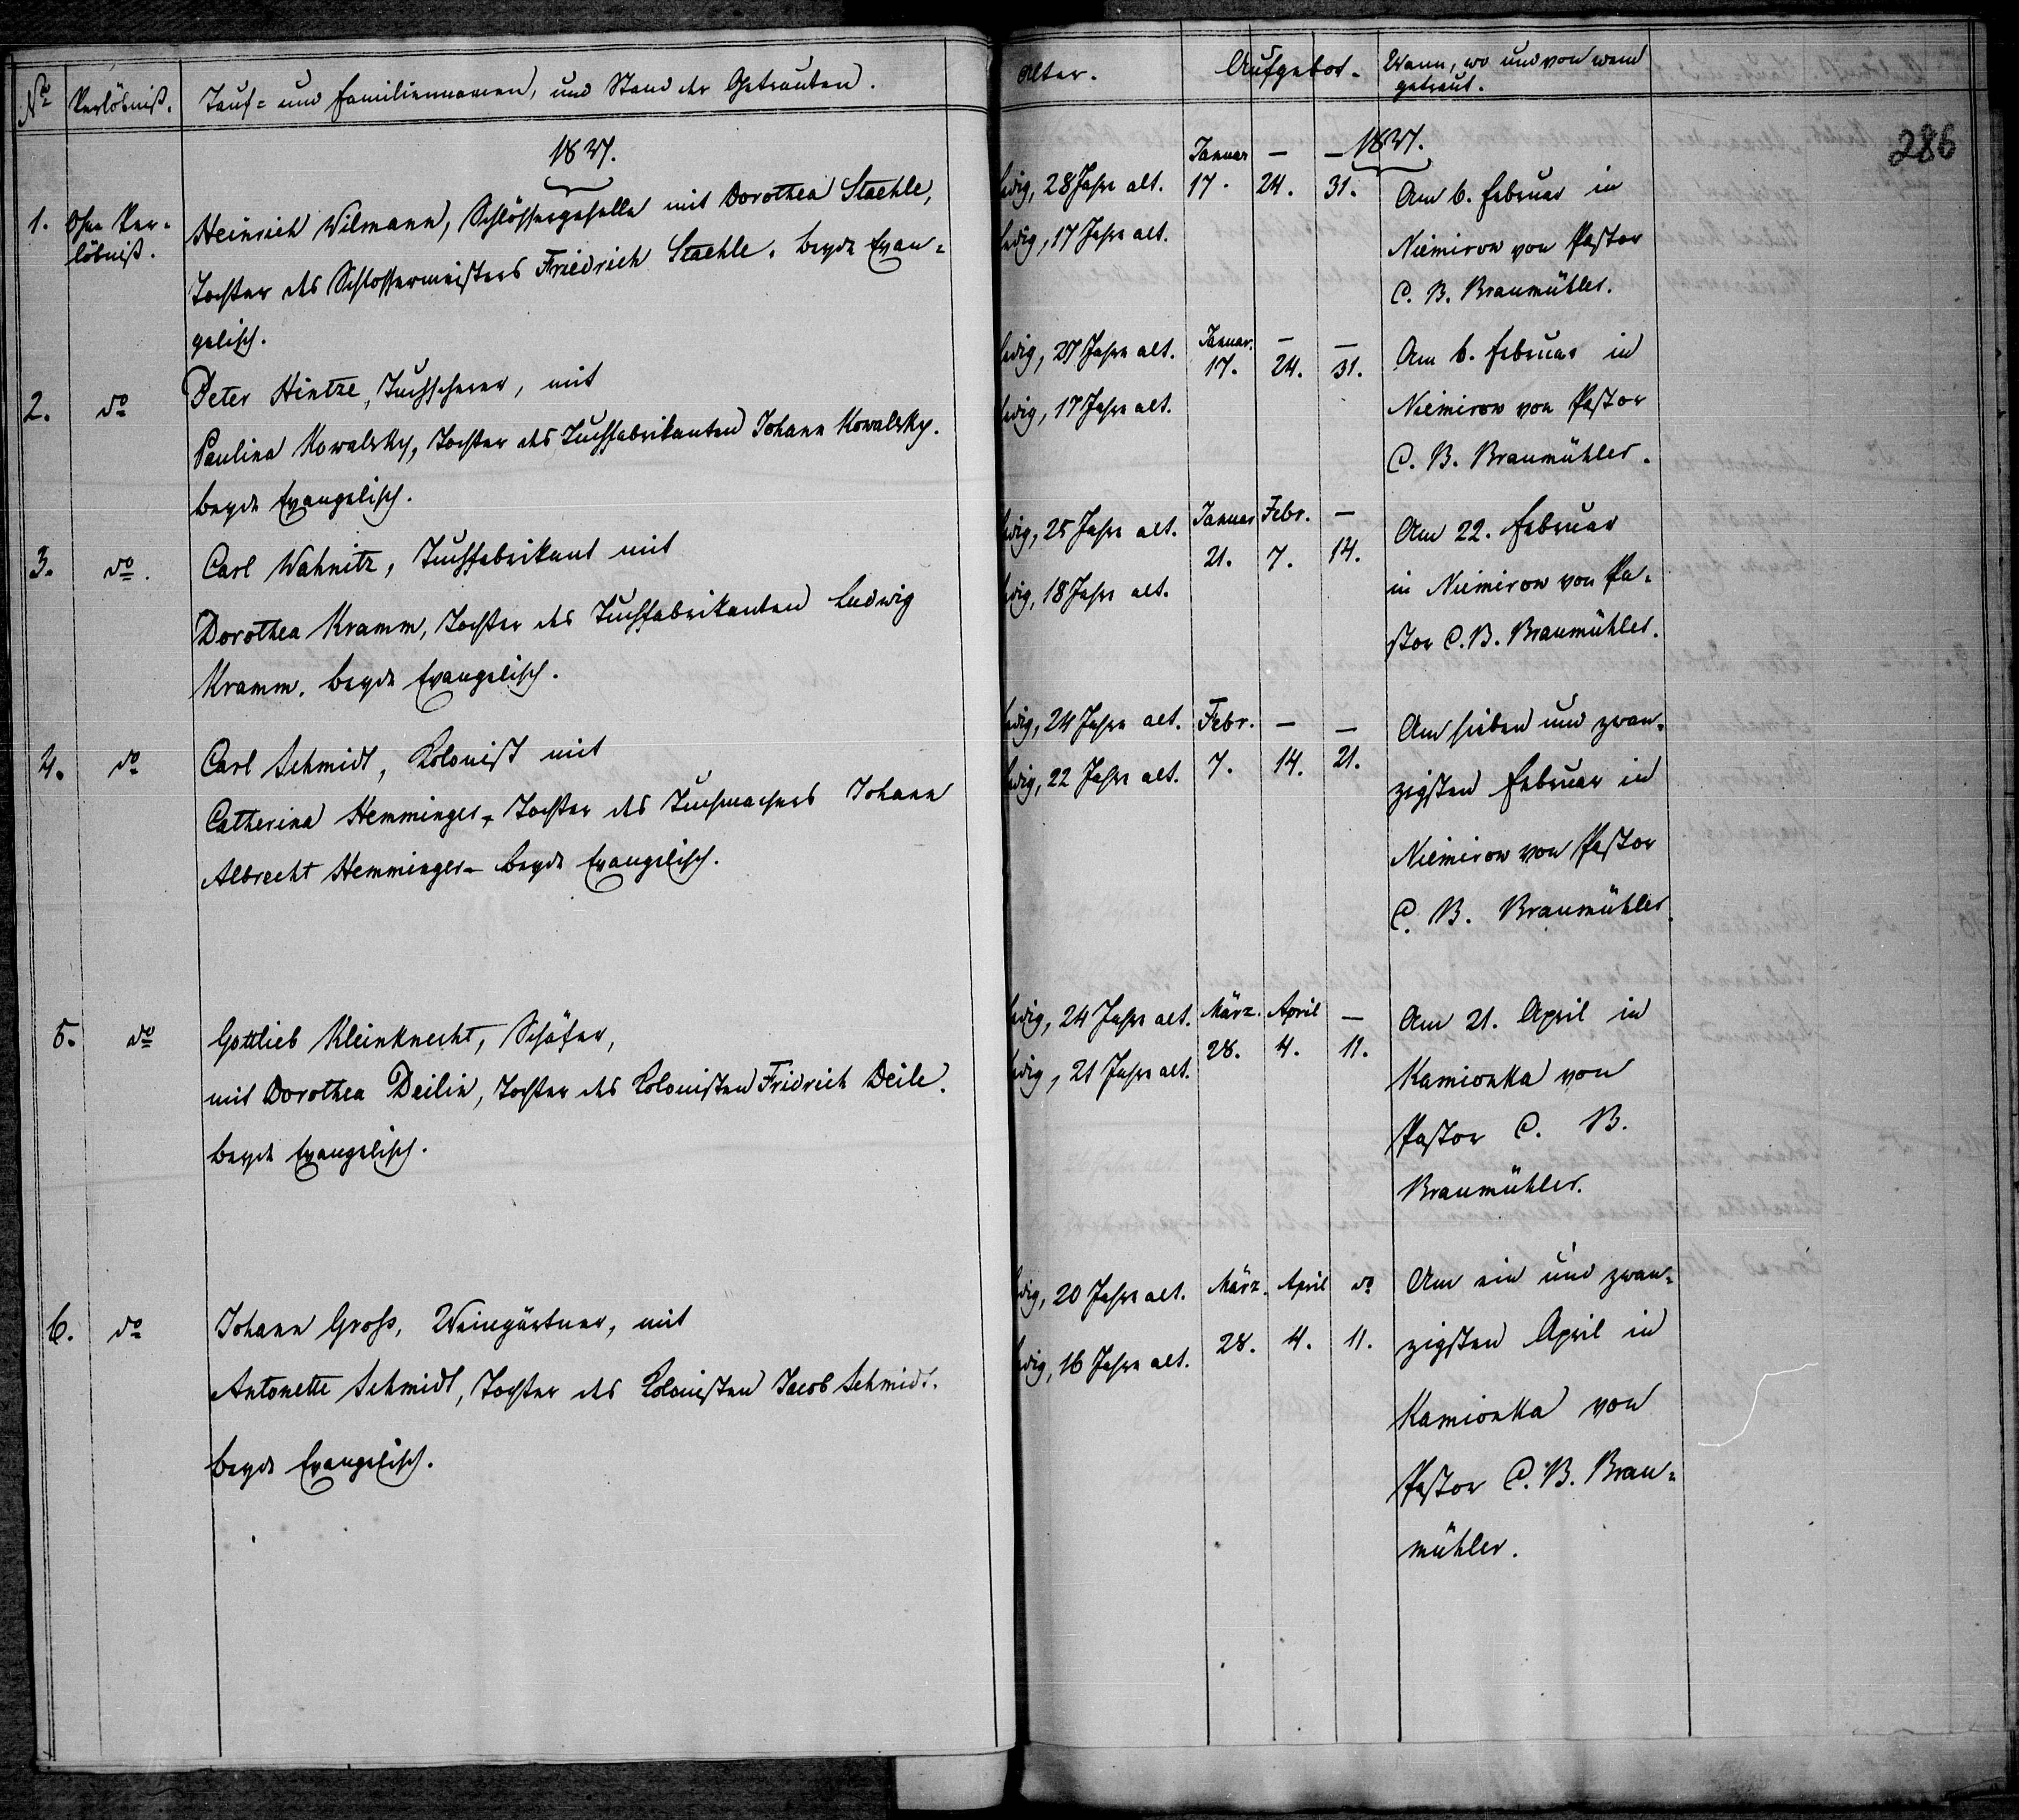 No
Verlöbniß.
Tauf= und Familiennamen, und Stand der Getrauten.
1837.
1.
Ohne Ver-
löbniß.
Heinrich Wilmann, Schlössergeselle mit Dorothea Staehle,
Tochter des Schlossermeisters Friedrich Staehle. beyde Evan=
gelisch.
2.
do
Peter Hintze, Tuchscherer, mit
Paulina Kowalsky, Tochter des Tuchfabrikanten Johann Kowalsky.
beyde Evangelisch.
3.
do.
Carl Wahnitz, Tuchfabrikant mit
Dorothea Kramm, Tochter des Tuchfabrikanten Ludwig
Kramm. beyde Evangelisch.
4.
do
Carl Schmidt, Kolonist mit
Catherina Hemminger, Tochter des Tuchmachers Johann
Albrecht Hemminger. beyde Evangelisch.
5.
do
Gottlieb Kleinknecht, Schäfer,
mit Dorothea Deilin, Tochter des Colonisten Fridrich Deile.
beyde Evangelisch.
6.
do
Johann Groß, Weingärtner, mit
Antonette Schmidt, Tochter des Colonisten Jacob Schmidt.
beyde Evangelisch.
Alter.
Aufgebot.
Wann, wo und von wem
getraut.
286
1837.
ledig, 28 Jahre alt.
ledig, 17 Jahre alt.
Januar — —
17. 24. 31.
Am 6. Februar in
Niemirow von Pastor
C. B. Braumühler.
ledig, 27 Jahre alt.
ledig, 17 Jahre alt.
Januar. — —
17. 24. 31.
Am 6. Februar in
Niemirow von Pastor
C. B. Braumühler.
ledig, 25 Jahre alt.
ledig, 18 Jahre alt.
Januar Febr. —
21. 7. 14.
Am 22. Februar
in Niemirow von Pa-
stor C. B. Braumühler.
ledig, 24 Jahre alt.
ledig, 22 Jahre alt.
Febr. — —
7. 14. 21.
Am sieben und zwan-
zigsten Februar in
Niemirow von Pastor
C. B. Braumühler.
ledig, 24 Jahre alt.
ledig, 21 Jahre alt.
März. April —
28. 4. 11.
Am 21. April in
Kamionka von
Pastor C. B.
Braumühler.
ledig, 20 Jahre alt.
ledig, 16 Jahre alt.
März. April do
28. 4. 11.
Am ein und zwan-
zigsten April in
Kamionka von
Pastor C. B. Brau=
mühler.